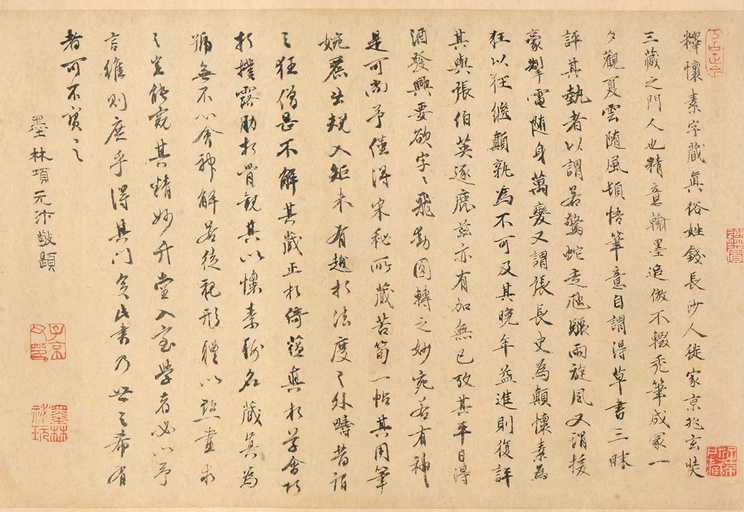 釋懷素字藏真俗姓錢長沙人徙家京兆玄奘
三藏之門人也精意翰墨追倣不輟禿筆成冢一
夕觀夏雲隨風頓悟筆意自謂得草書三昧
評其執者以謂若驚蛇走虺驟雨旋風又謂援
豪掣電隨身萬變又謂張長史為顛懷素為
狂以狂繼顛孰為不可及其晚年益進則復評
其與張伯英逐鹿茲亦有加無已故其平日得
酒發興要欲字〻飛動圓轉之妙宛若有神
是可尚予僅得宋秘所藏苦筍一帖其用筆
婉麗出規入矩未有越於法度之外疇昔謂
之狂僧甚不解其藏正於倚蘊真於草會巧
於撲露肋於骨觀其以懷素稱名藏真為
號無不心會神解若徒視形體以點畫求
之豈能窺其精妙升堂入室學者必以予
言維則庶乎得其門矣此書乃世之希有
者可不寶之
墨林項元汴敬題
子京父印
墨林秘玩